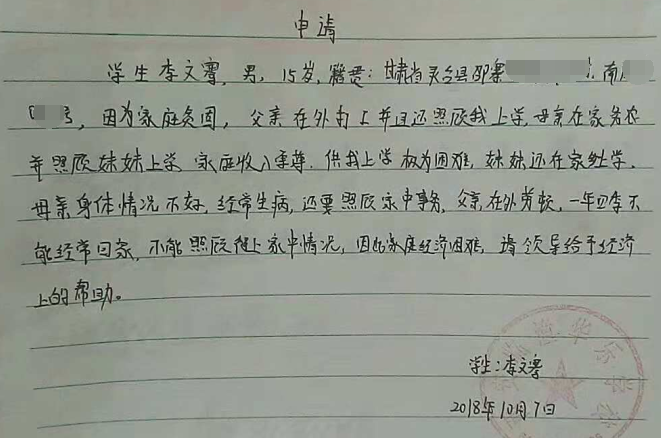 申请
学生李文霄，男，15岁，籍贯：甘肃省灵台县邵寨
号，因为家庭贫困，父亲在外打工并且还照顾我上学，母亲在家务农
并照顾妹妹上学，家庭收入，供我上学极为困难，妹妹还在家上学，
母亲身体情况不好，经常生病，还要照顾家中事务，父亲在外劳务，一年四季不
能经常回家，不能照顾得上家中情况，因此家庭经济困难，请领导给予经济
上的帮助。
学生：李文霄
2018年10月7日